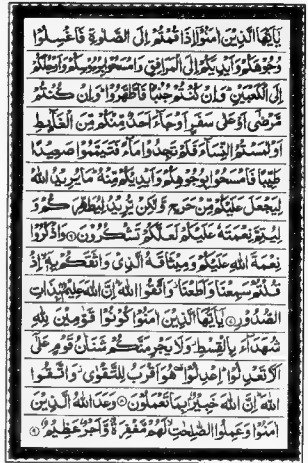 يٰٓاَيُّهَا الَّذِيْنَ اٰمَنُوْۤا اِذَا قُمْتُمْ اِلَى الصَّلٰوةِ فَاغْسِلُوْا
وُجُوْهَكُمْ وَاَيْدِيَكُمْ اِلَى الْمَرَافِقِ وَامْسَحُوْا بِرُءُوْسِكُمْ وَاَرْجُلَكُمْ
اِلَى الْكَعْبَيْنِ ؕ وَاِنْ كُنْتُمْ جُنُبًا فَاطَّهَّرُوْا ؕ وَاِنْ كُنْتُمْ
مَّرْضٰۤى اَوْ عَلٰى سَفَرٍ اَوْ جَآءَ اَحَدٌ مِّنْكُمْ مِّنَ الْغَآئِطِ
اَوْ لٰمَسْتُمُ النِّسَآءَ فَلَمْ تَجِدُوْا مَآءً فَتَيَمَّمُوْا صَعِيْدًا
طَيِّبًا فَامْسَحُوْا بِوُجُوْهِكُمْ وَاَيْدِيْكُمْ مِّنْهُ ؕ مَا يُرِيْدُ اللّٰهُ
لِيَجْعَلَ عَلَيْكُمْ مِّنْ حَرَجٍ وَّلٰكِنْ يُّرِيْدُ لِيُطَهِّرَكُمْ وَ
لِيُتِمَّ نِعْمَتَهٗ عَلَيْكُمْ لَعَلَّكُمْ تَشْكُرُوْنَ ۝۶ وَاذْكُرُوْا
نِعْمَةَ اللّٰهِ عَلَيْكُمْ وَمِيْثَاقَهُ الَّذِيْ وَاثَقَكُمْ بِهٖۤ ۙ اِذْ
قُلْتُمْ سَمِعْنَا وَاَطَعْنَا ؗ وَاتَّقُوا اللّٰهَ ؕ اِنَّ اللّٰهَ عَلِيْمٌۢ بِذَاتِ
الصُّدُوْرِ ۝۷ يٰٓاَيُّهَا الَّذِيْنَ اٰمَنُوْا كُوْنُوْا قَوّٰمِيْنَ لِلّٰهِ
شُهَدَآءَ بِالْقِسْطِ ؗ وَلَا يَجْرِمَنَّكُمْ شَنَاٰنُ قَوْمٍ عَلٰۤى
اَلَّا تَعْدِلُوْا ؕ اِعْدِلُوْا ۫ هُوَ اَقْرَبُ لِلتَّقْوٰى ؗ وَاتَّقُوا
اللّٰهَ ؕ اِنَّ اللّٰهَ خَبِيْرٌۢ بِمَا تَعْمَلُوْنَ ۝۸ وَعَدَ اللّٰهُ الَّذِيْنَ
اٰمَنُوْا وَعَمِلُوا الصّٰلِحٰتِ ۙ لَهُمْ مَّغْفِرَةٌ وَّاَجْرٌ عَظِيْمٌ ۝۹